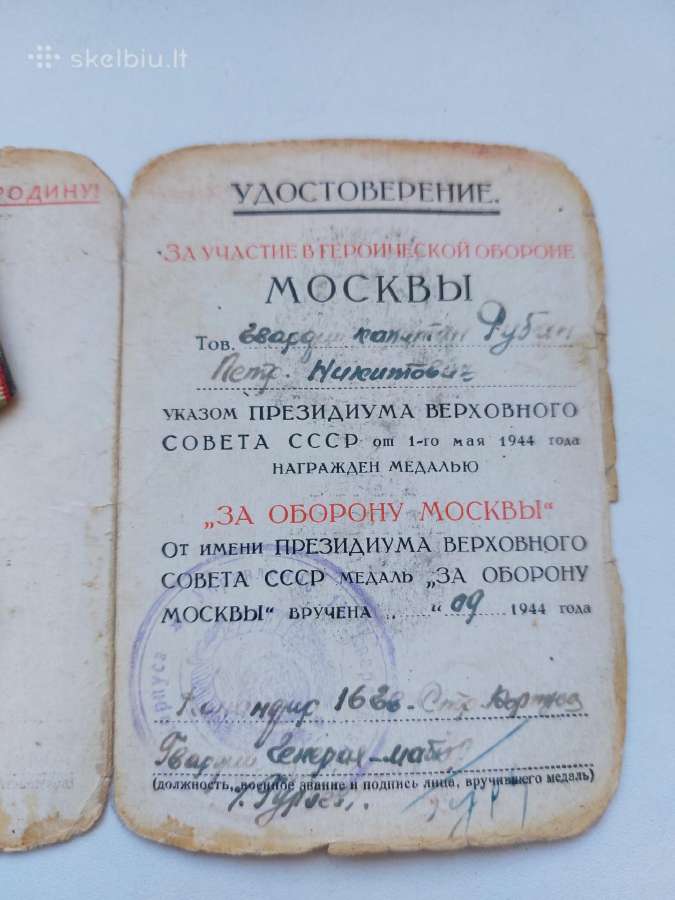 skelbiu.lt
РОДИНУ!
УДОСТОВЕРЕНИЕ.
ЗА УЧАСТИЕ В ГЕРОИЧЕСКОЙ ОБОРОНЕ
МОСКВЫ
Тов. Гвардии капитан Рубан
Петр Никитович
УКАЗОМ ПРЕЗИДИУМА ВЕРХОВНОГО
СОВЕТА СССР от 1-го мая 1944 года
НАГРАЖДЕН МЕДАЛЬЮ
„ЗА ОБОРОНУ МОСКВЫ“
ОТ ИМЕНИ ПРЕЗИДИУМА ВЕРХОВНОГО
СОВЕТА СССР МЕДАЛЬ „ЗА ОБОРОНУ
МОСКВЫ“ ВРУЧЕНА „ “ 09 1944 года
рпуса
Командир 16 Гв. Стр. Корпуса
Гвардии Генерал-майор
(должность, военное звание и подпись лица, вручившего медаль)